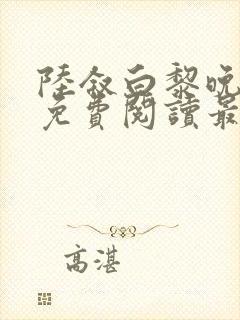 陸敘白黎晚
免費閱讀最
高湛